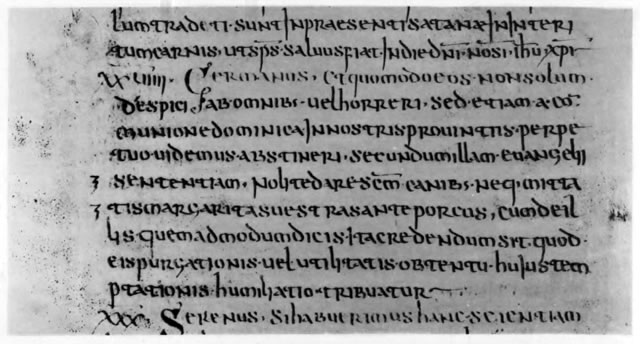 lum traditi sunt in praesenti satanæ in interi
tum carnis · ut sps · saluus fiat in die dni nosi · ihu xpi
XXVIIII · Germanus, et quomodo eos non solum ·
despici · ab omnib; · uel horreri · sed etiam a co
munione dominica in nostris prouintiis · perpe
tuo uidemus · abstineri · secundum illam euangelii
sententiam · nolite dare scm canib; · neq; mitta
tis margaritas uestras ante porcus, cum de il
lis · quem ad modum dicis · ita credendum sit · quod ·
eis purgationis · uel utilitatis · obtentu · huius tem
ptationis humiliatio · tribuatur
XXX, Serenus, si habuerimus hanc · scientiam